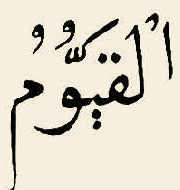 الْقَيُّومُ